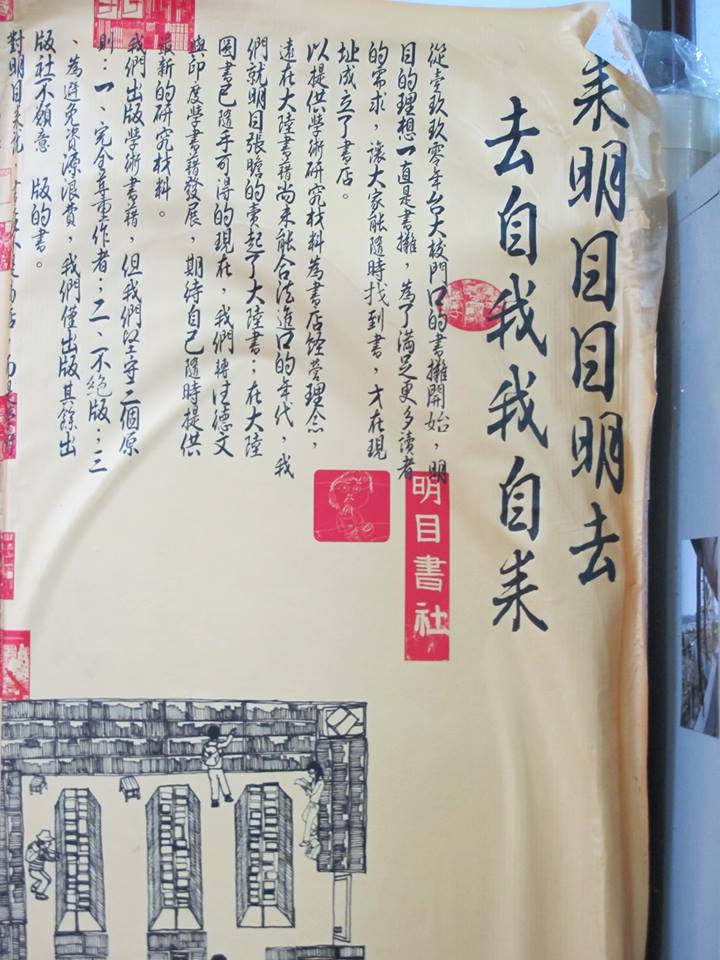 来明目目明去
去自我我自来
從壹玖玖零年台大校門口的書攤開始，明
目的理想一直是書攤，為了滿足更多讀者
的需求，讓大家能隨時找到書，才在現
址成立了書店。
以提供學術研究材料為書店經營理念，
遠在大陸書籍尚未能合法進口的年代，我
們就明目張膽的賣起了大陸書；在大陸
圖書已隨手可得的現在，我們轉注德文
與印度學書籍發展，期待自己隨時提供
最新的研究材料。
我們出版學術書籍，但我們堅守三個原
則：一、完全尊重作者；二、不絕版；三
、為避免資源浪費，我們僅出版其餘出
版社不願意 版的書。
對明目来說，書店
明目書社